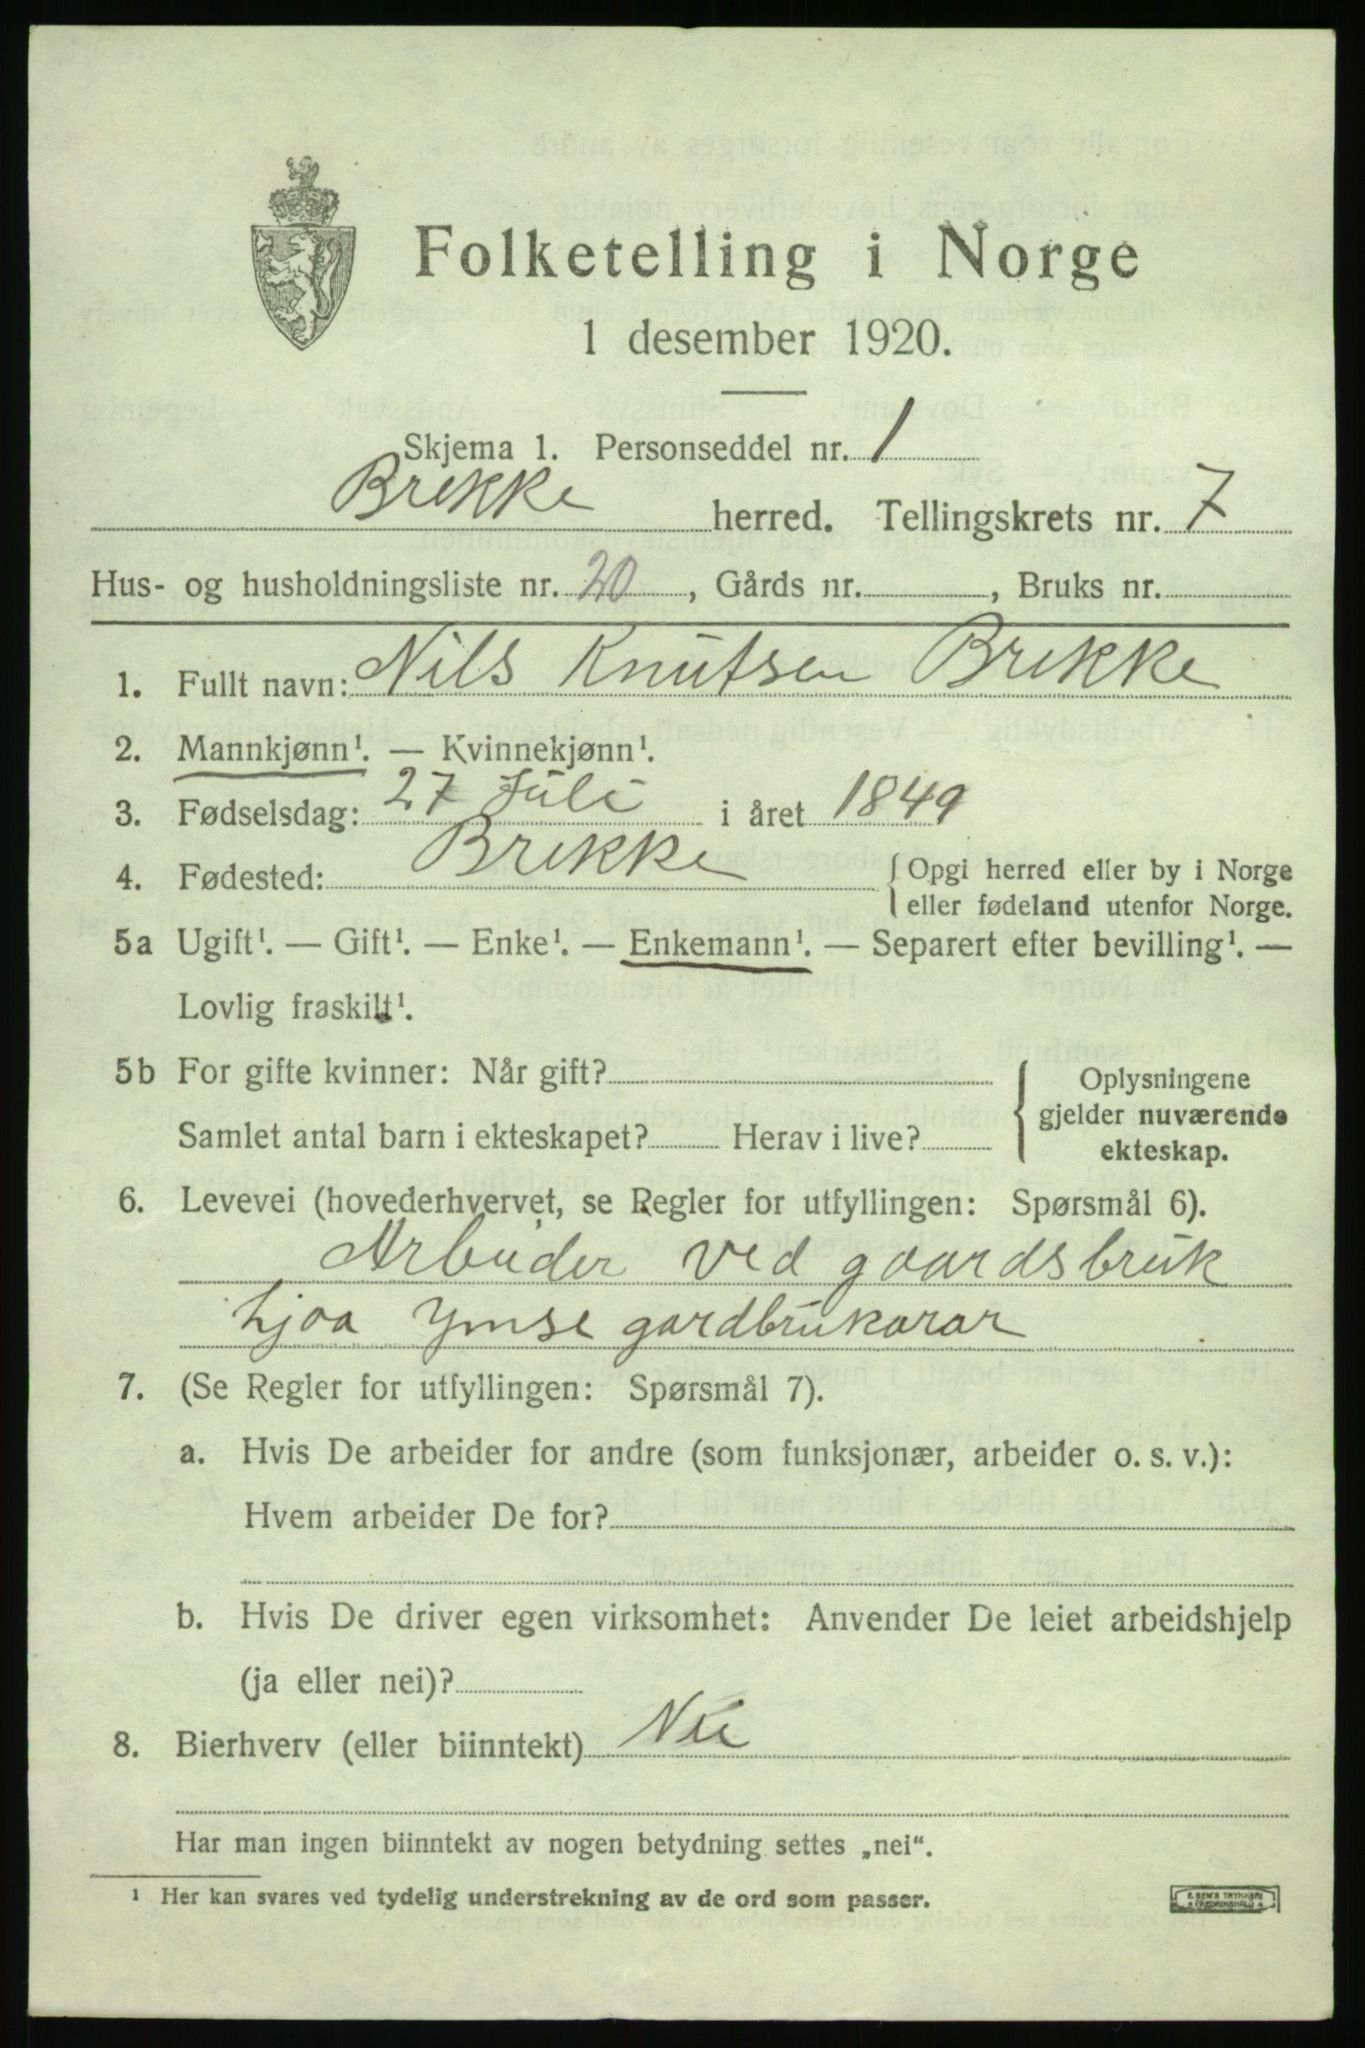 Folketelling i Norge
1 desember 1920.
Skjema 1. Personseddel nr. 1
Brekke herred. Tellingskrets nr. 7
Hus- og husholdningsliste nr. 20, Gårds nr. , Bruks nr.
1. Fullt navn: Nils Knutsen Brekke
2. Mannkjønn¹. — Kvinnekjønn¹.
3. Fødselsdag: 27 Juli i året 1849
4. Fødested: Brekke { Opgi herred eller by i Norge
eller fødeland utenfor Norge.
5a Ugift¹. — Gift¹. — Enke¹. — Enkemann¹. — Separert efter bevilling¹. —
Lovlig fraskilt¹.
5b For gifte kvinner: Når gift? { Oplysningene
gjelder nuværende
Samlet antal barn i ekteskapet? Herav i live?
ekteskap.
6. Levevei (hovederhvervet, se Regler for utfyllingen: Spørsmål 6).
Arbeider ved gaardsbruk
hjaa ymse gardbrukarar
7. (Se Regler for utfyllingen: Spørsmål 7).
a. Hvis De arbeider for andre (som funksjonær, arbeider o. s. v.):
Hvem arbeider De for?
b. Hvis De driver egen virksomhet: Anvender De leiet arbeidshjelp
(ja eller nei)?
8. Bierhverv (eller biinntekt) Nei
Har man ingen biinntekt av nogen betydning settes „nei“.
¹ Her kan svares ved tydelig understrekning av de ord som passer.
E. SEM'S TRYKKERI
FREDRIKSHALD